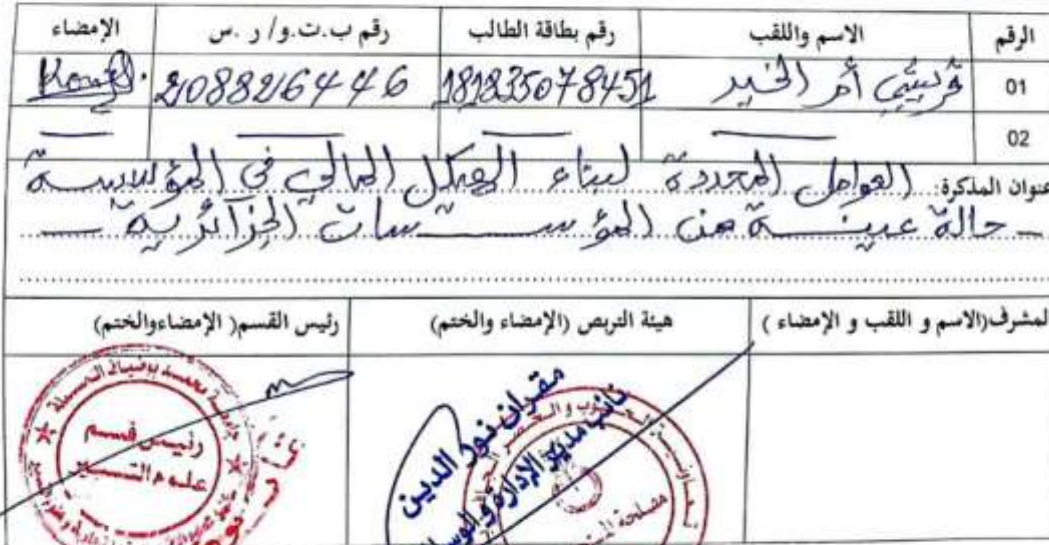 الرقم الاسم واللقب رقم بطاقة الطالب رقم ب.ت.و/ ر .س الإمضاء
01 قريشي أم الخير 181835078451 208826446
02 — — — —
عنوان المذكرة: العوامل المحددة لبناء الهيكل المالي في المؤسسة
– حالة عينة من المؤسسات الجزائرية –
لمشرف(الاسم و اللقب و الإمضاء ) هيئة التربص (الإمضاء والختم) رئيس القسم( الإمضاءوالختم)
مقران نور الدين
نائب مدير الإدارة و
مصلحة
جامعة محمد بوضياف المسيلة
رئيس قسم
علوم التسيير